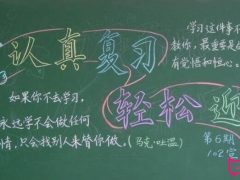 认真复习
轻松近
学习这件事不
教你，最重要是
有觉悟和恒心。
如果你不去学习，
永远学不会做任何
情，只会找别人来替你做。（马克·吐温）
第6期
102宣